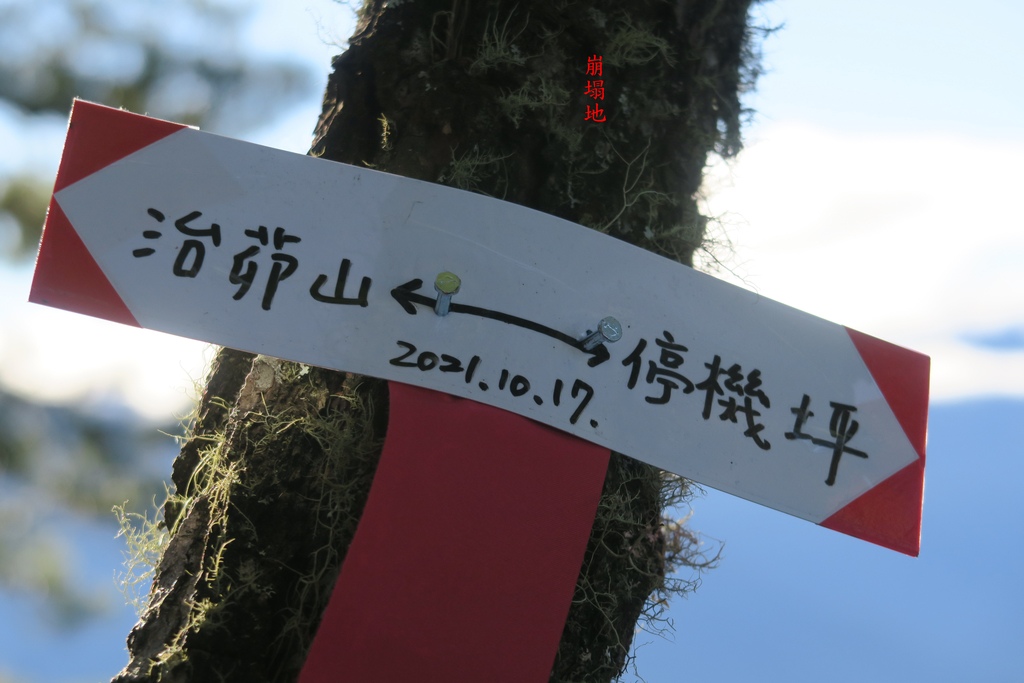 崩塌地
治茆山 ↔ 停機坪
2021.10.17.